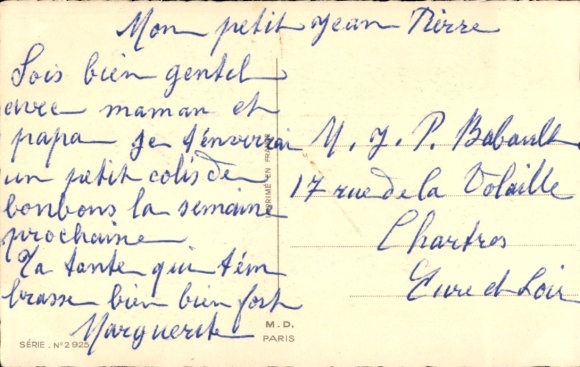 Mon petit Jean Pierre
Sois bien gentil
avec maman et
papa Je t'énverrai
un petit colis de
bonbons la semaine
prochaine
Ta tante qui t'ém
brasse bien bien fort
Marguerite
M. J. P. Babault
17 rue de la Volaille
Chartres
Eure et Loir
IMPRIMÉ EN FRANCE
M. D.
PARIS
SÉRIE. N° 2925